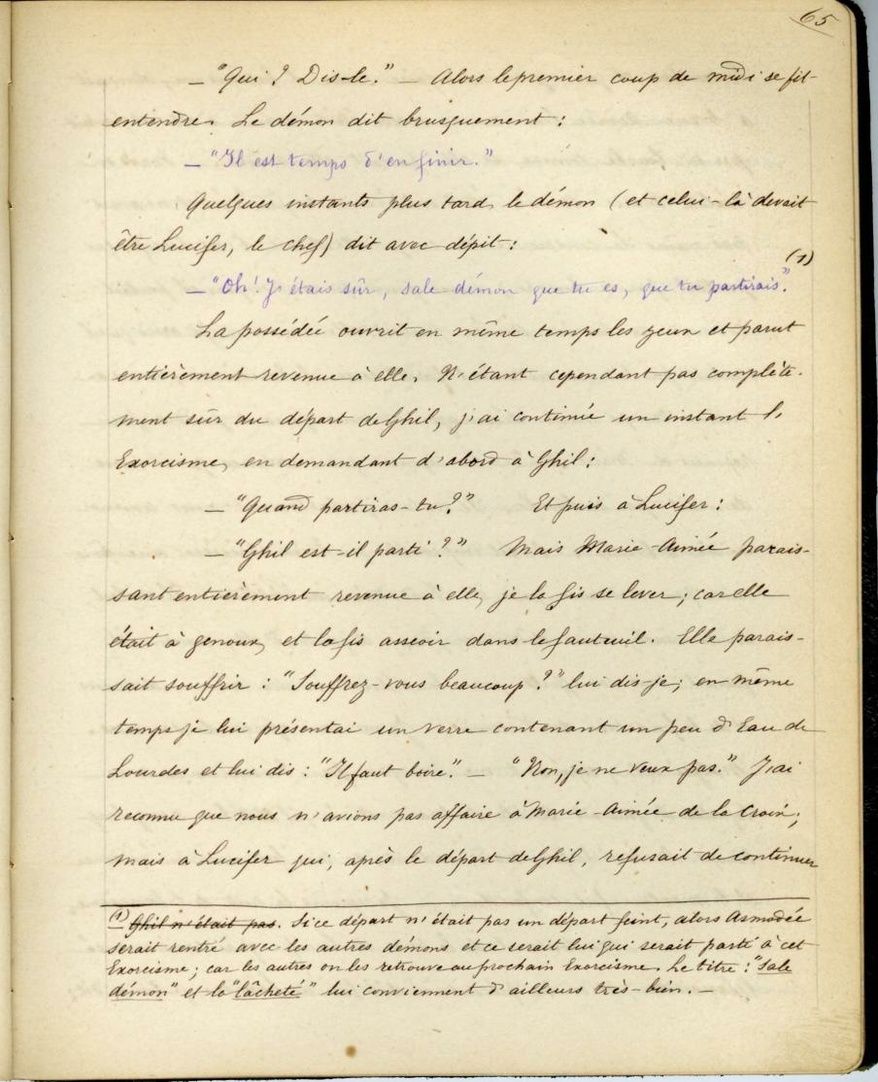 65
— "Qui ? Dis-le." — Alors le premier coup de midi se fit
entendre. Le démon dit brusquement :
— "Il est temps d'en finir."
Quelques instants plus tard, le démon (et celui-là devait
être Lucifer, le chef) dit avec dépit :
— "Oh ! J'étais sûr, sale démon que tu es, que tu partirais." (1)
La possédée ouvrit en même temps les yeux et parut
entièrement revenue à elle. N'étant cependant pas complète-
ment sûr du départ de Ghil, j'ai continué un instant l'
Exorcisme, en demandant d'abord à Ghil :
— "Quand partiras-tu ?" Et puis à Lucifer :
— "Ghil est-il parti ?" Mais Marie-Aimée parais-
sant entièrement revenue à elle, je la fis se lever ; car elle
était à genoux, et la fis asseoir dans le fauteuil. Elle parais-
sait souffrir : "Souffrez-vous beaucoup ?" lui dis-je ; en même
temps je lui présentai un verre contenant un peu d'Eau de
Lourdes et lui dis : "Il faut boire." — "Non, je ne veux pas." J'ai
reconnu que nous n'avions pas affaire à Marie-Aimée de la Croix ;
mais à Lucifer qui, après le départ de Ghil, refusait de continuer
(1) Ghil n'était pas. Si ce départ n'était pas un départ feint, alors Asmodée
serait rentré avec les autres démons et ce serait lui qui serait parti à cet
Exorcisme ; car les autres on les retrouve au prochain Exorcisme. Le titre : "Sale
démon" et la "lâcheté" lui conviennent d'ailleurs très-bien. —